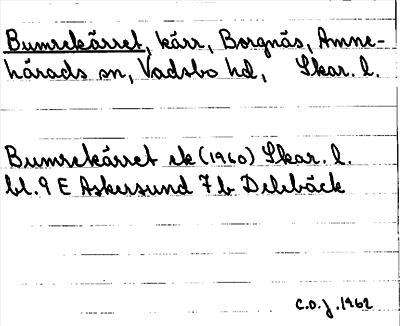 Bumsekärret, kärr, Borgnäs, Amne-
härads sn, Vadsbo hd, Skar. l.
Bumsekärret ek (1960) Skar. l.
bl. 9 E Askersund 7 b Delebäck
C.O.J. 1962